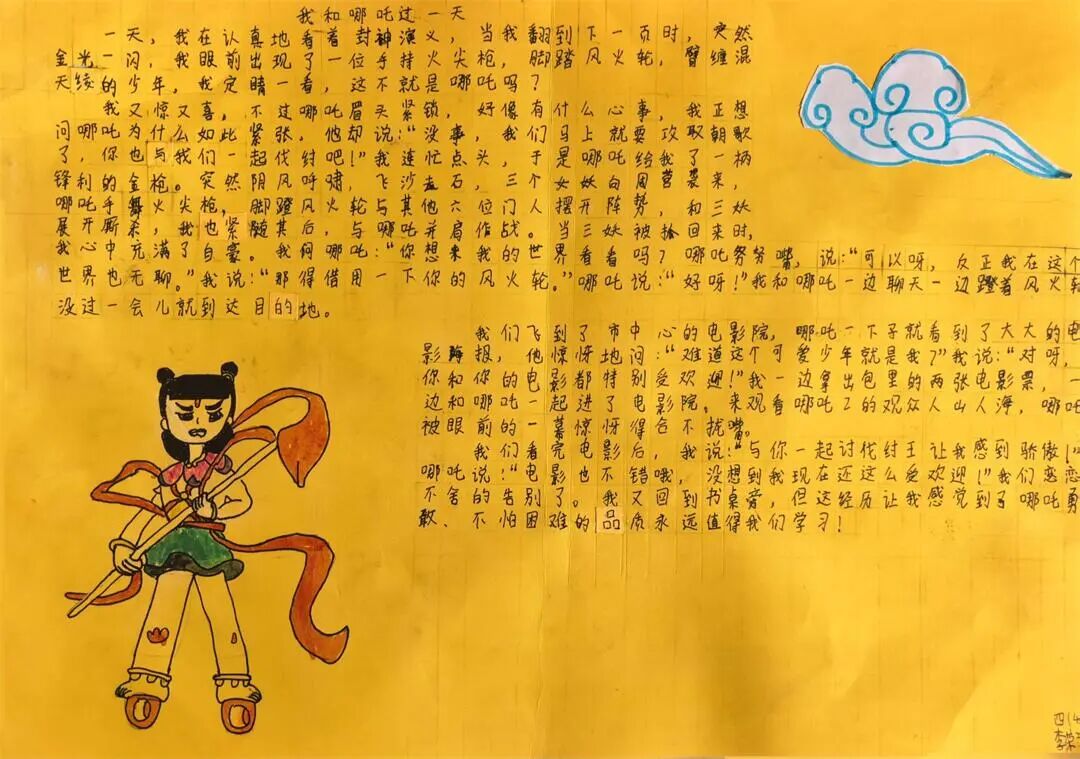 我和哪吒过一天
一天，我在认真地看着封神演义，当我翻到下一页时，突然
金光一闪，我眼前出现了一位手持火尖枪，脚踏风火轮，臂缠混
天绫的少年，我定睛一看，这不就是哪吒吗？
我又惊又喜，不过哪吒眉头紧锁，好像有什么心事，我正想
问哪吒为什么如此紧张，他却说：“没事，我们马上就要攻取朝歌
了，你也与我们一起伐纣吧！”我连忙点头，于是哪吒给我了一柄
锋利的金枪。突然阴风呼啸，飞沙走石，三个女妖向周营袭来，
哪吒手舞火尖枪，脚蹬风火轮与其他六位门人摆开阵势，和三妖
展开厮杀，我也紧随其后，与哪吒并肩作战。当三妖被抢回来时，
我心中充满了自豪。我问哪吒：“你想来我的世界看看吗？哪吒努努嘴，说：“可以呀，反正我在这个
世界也无聊。”我说：“那得借用一下你的风火轮。”哪吒说：“好呀！”我和哪吒一边聊天一边蹬着风火轮
没过一会儿就到达目的地。
我们飞到了市中心的电影院，哪吒一下子就看到了大大的电
影海报，他惊讶地问：“难道这个可爱少年就是我？”我说：“对呀，
你和你的电影都特别受欢迎！”我一边拿出包里的两张电影票，一
边和哪吒一起进了电影院。来观看哪吒2的观众人山人海，哪吒
被眼前的一幕惊讶得合不拢嘴。
我们看完电影后，我说：“与你一起讨伐纣王让我感到骄傲！”
哪吒说！“电影也不错哦，没想到我现在还这么受欢迎！”我们恋恋
不舍的告别了。我又回到书桌旁，但这经历让我感觉到了哪吒勇
敢、不怕困难的品质永远值得我们学习！
四(4
李